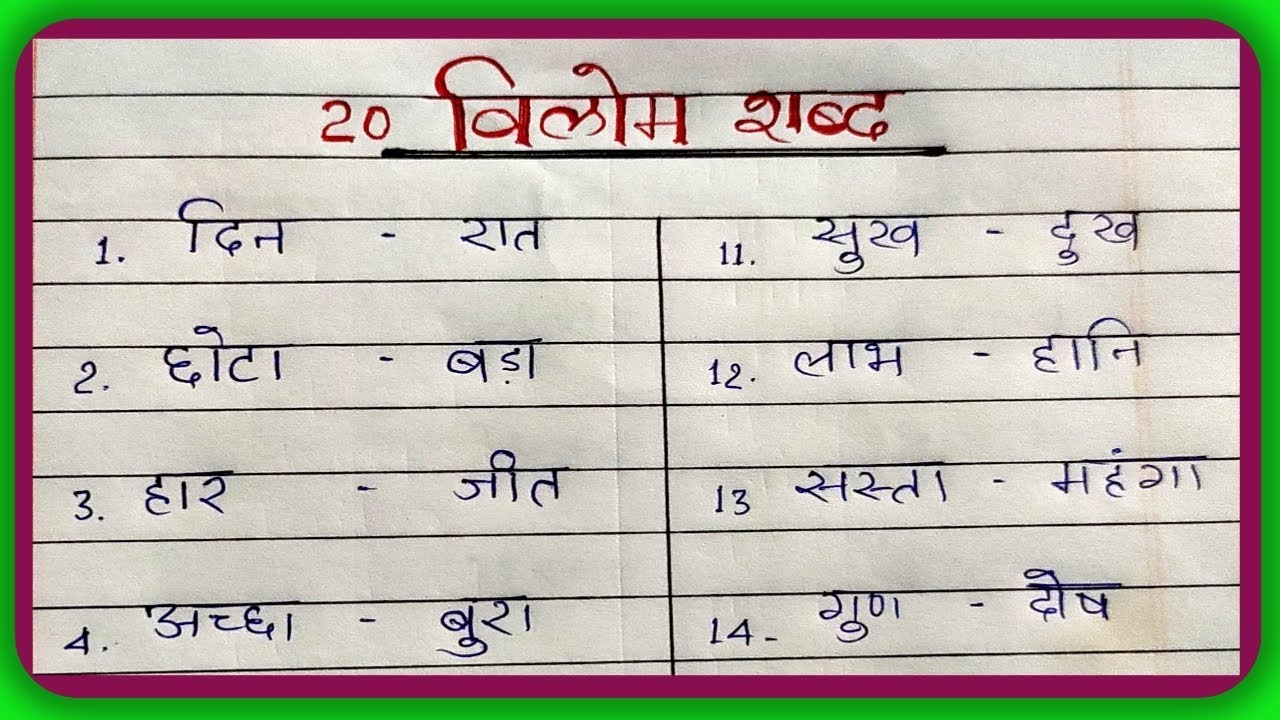 20 विलोम शब्द
1. दिन - रात
2. छोटा - बड़ा
3. हार - जीत
4. अच्छा - बुरा
11. सुख - दुख
12. लाभ - हानि
13 सस्ता - महंगा
14- गुण - दोष